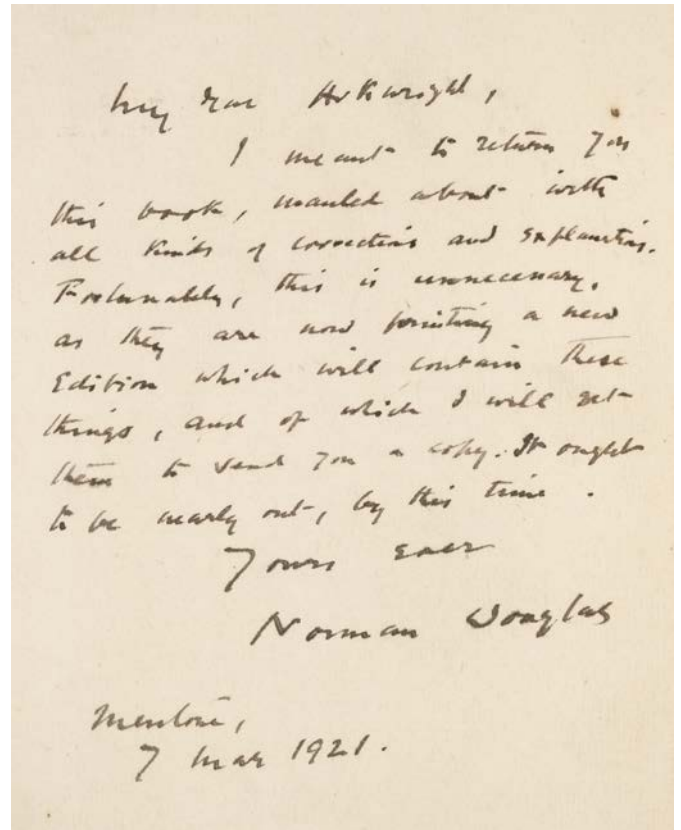 My dear Arkwright,
I meant to return you
this book, mauled about with
all kinds of corrections and explanations.
Fortunately, this is unnecessary,
as they are now printing a new
Edition which will contain these
things, and of which I will get
them to send you a copy. It ought
to be nearly out, by this time.
Yours ever
Norman Douglas
Mentone,
7 Mar 1921.